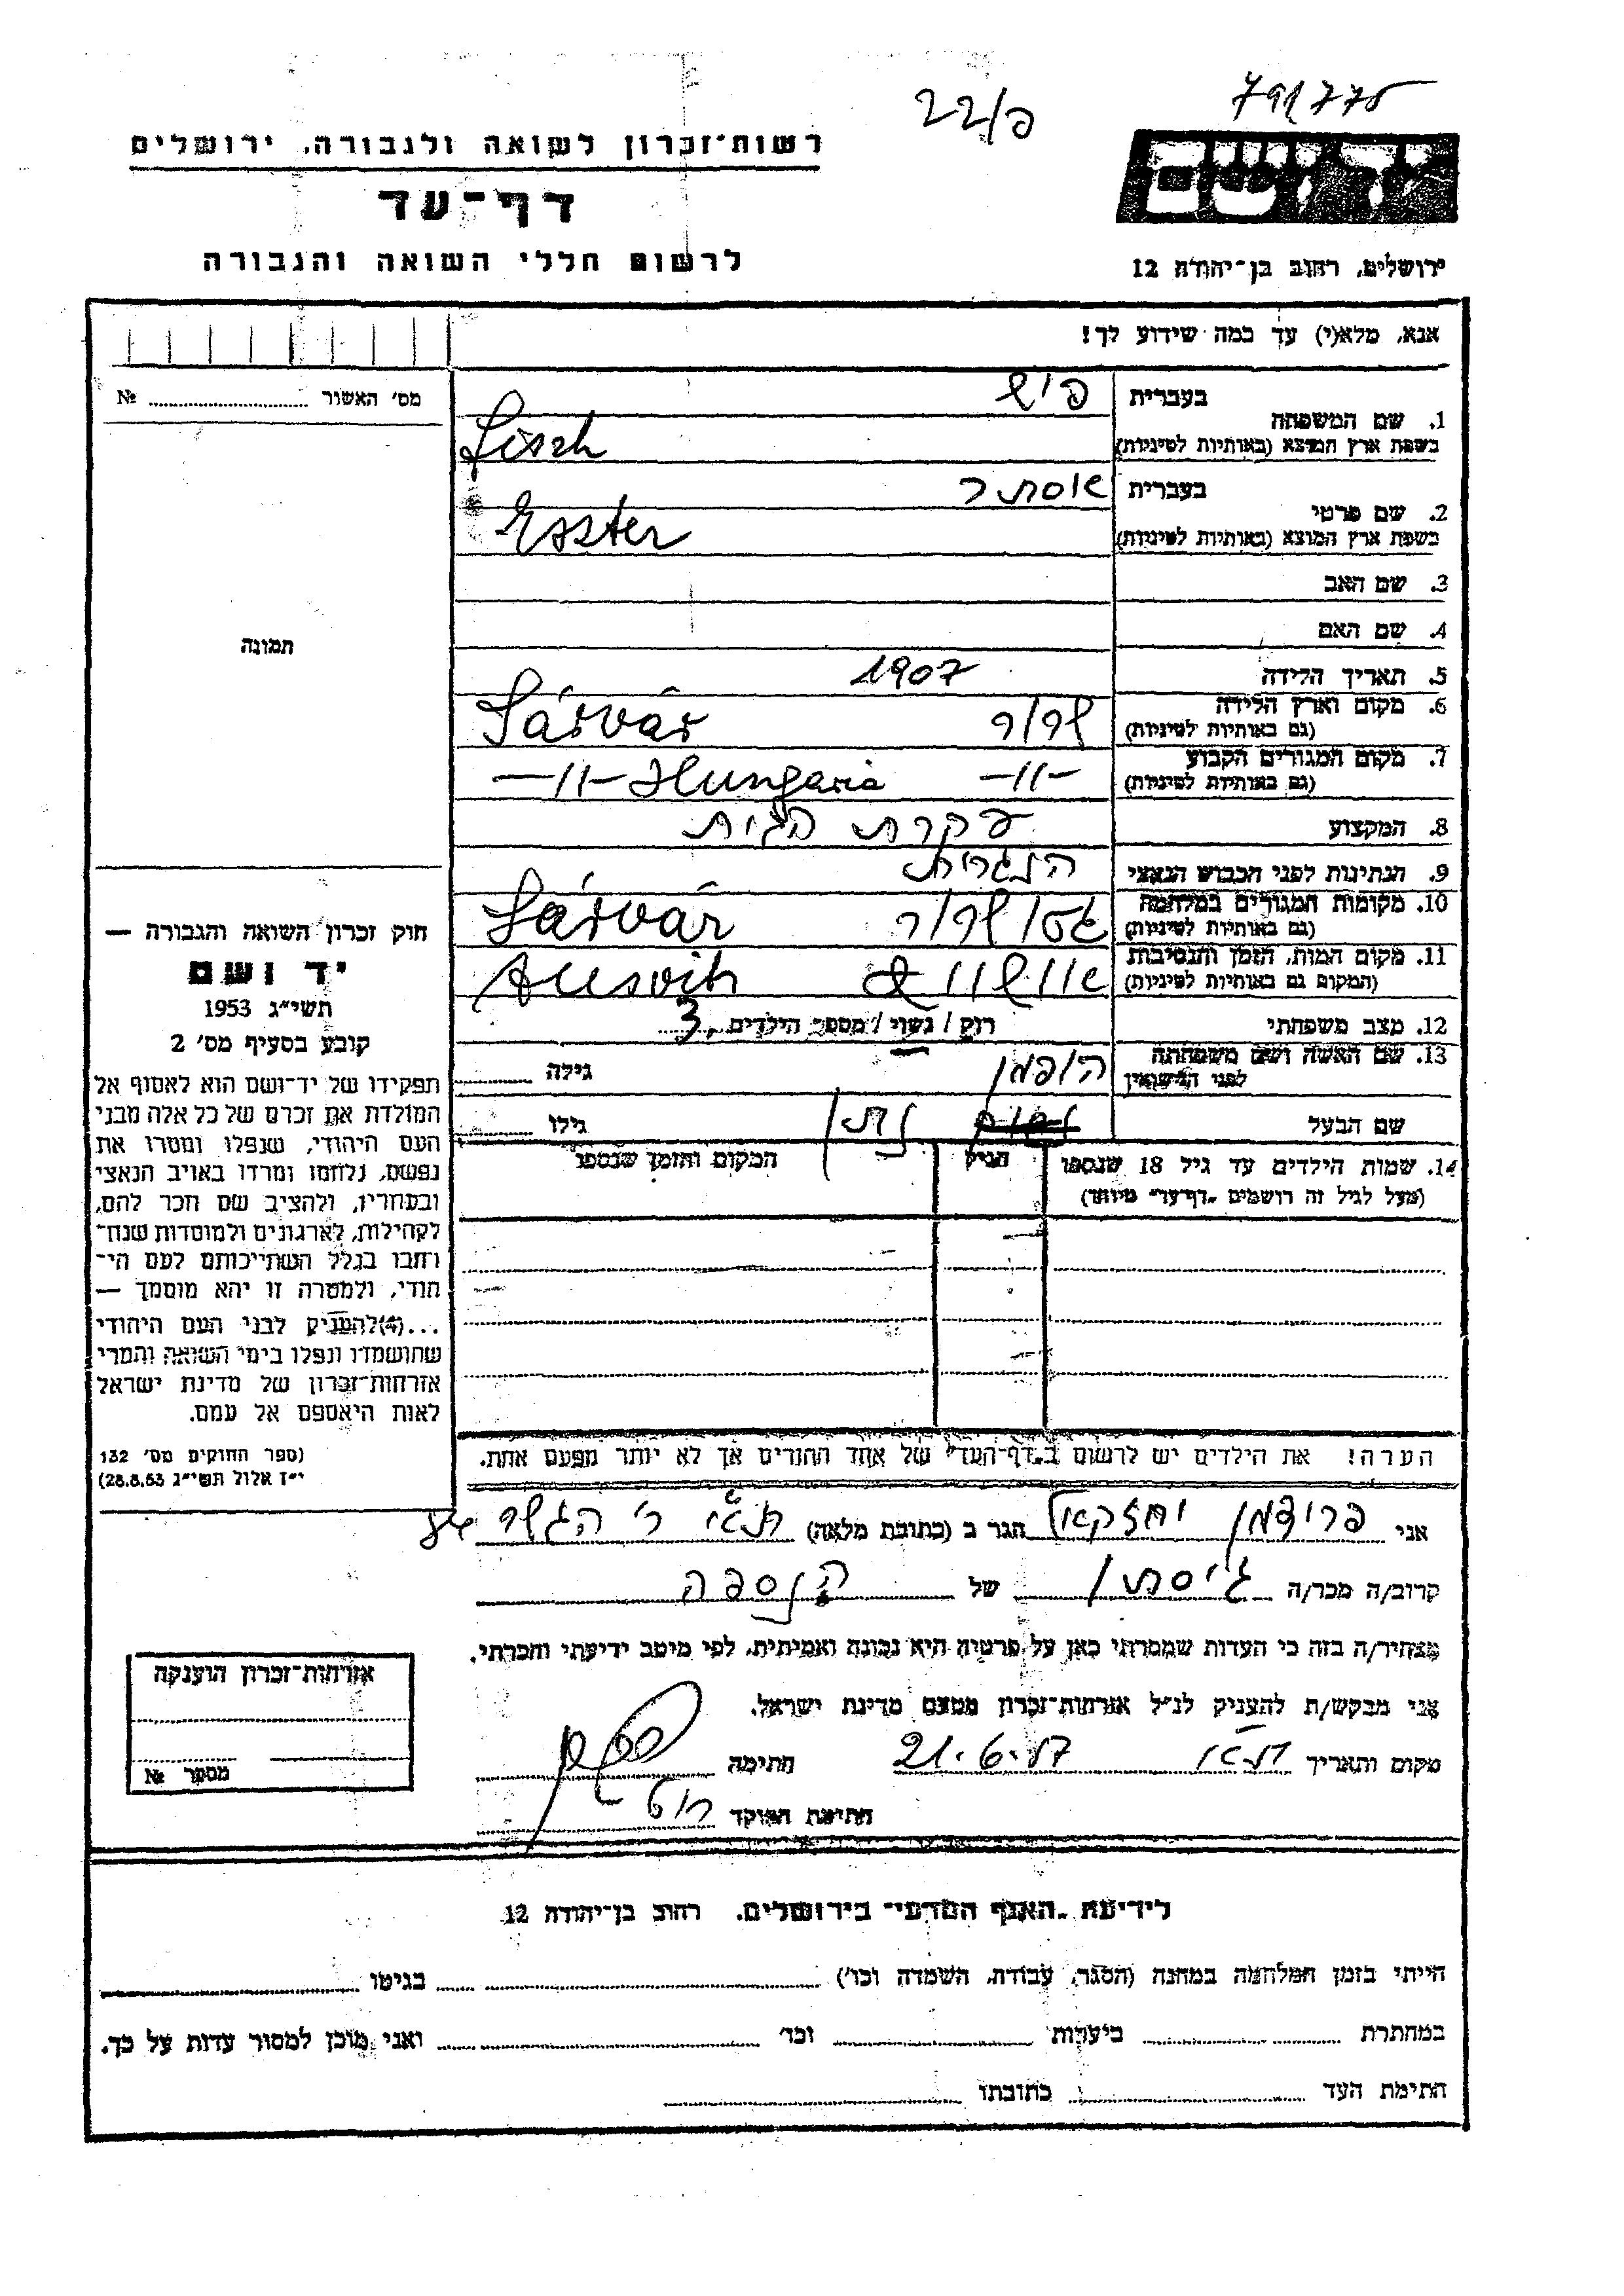 791775
22/פ
רשות־זכרון לשואה ולגבורה, ירושלים
דף־עד
לרשום חללי השואה והגבורה
יד ושם
ירושלים, רחוב בן־יהודה 12
אנא, מלא(י) עד כמה שידוע לך!
מס' האשור № 
בעברית פיש
1. שם המשפחה
בשפת ארץ המוצא (באותיות לטיניות) Fisch
בעברית אסתר
2. שם פרטי
בשפת ארץ המוצא (באותיות לטיניות) Eszter
3. שם האב
4. שם האם
תמונה
5. תאריך הלידה 1907
6. מקום וארץ הלידה
(גם באותיות לטיניות) שרור Sárvár
7. מקום המגורים הקבוע
(גם באותיות לטיניות) –11– –11– Hungaria
8. המקצוע עקרת הבית
9. הנתינות לפני הכבוש הנאצי הונגרית
10. מקומות המגורים במלחמה
(גם באותיות לטיניות) גטו שרור Sárvár
11. מקום המות, הזמן והנסיבות
(המקום גם באותיות לטיניות) אוישויץ Ausvitz
12. מצב משפחתי רוק / נשוי / מספר הילדים 3
13. שם האשה ושם משפחתה
לפני הנישואין הופמן גילה
שם הבעל נתן גילו
14. שמות הילדים עד גיל 18 שנספו הגיל המקום והזמן שנספו
(מעל לגיל זה רושמים "דף־עד" מיוחד)
חוק זכרון השואה והגבורה —
יד ושם
תשי"ג 1953
קובע בסעיף מס' 2
תפקידו של יד־ושם הוא לאסוף אל
המולדת את זכרם של כל אלה מבני
העם היהודי, שנפלו ומסרו את
נפשם, נלחמו ומרדו באויב הנאצי
ובעוזריו, ולהציב שם וזכר להם,
לקהילות, לארגונים ולמוסדות שנח־
רבו בגלל השתייכותם לעם הי־
הודי, ולמטרה זו יהא מוסמך —
...(4)להעניק לבני העם היהודי
שהושמדו ונפלו בימי השואה והמרי
אזרחות־זכרון של מדינת ישראל
לאות היאספם אל עמם.
(ספר החוקים מס' 132
י"ז אלול תשי"ג 28.8.53)
הערה! את הילדים יש לרשום ב"דף־העד" של אחד ההורים אך לא יותר מפעם אחת.
אני פרידמן יחזקאל הגר ב (כתובת מלאה) ת"א ר'
קרוב/ה מכר/ה גיסתו של הנספה
מצהיר/ה בזה כי העדות שמסרתי כאן על פרטיה היא נכונה ואמיתית, לפי מיטב ידיעתי והכרתי.
אני מבקש/ת להעניק לנ"ל אזרחות־זכרון מטעם מדינת ישראל.
מקום ותאריך ת"א 21.6.57 חתימה
חתימת הפוקד
אזרחות־זכרון הוענקה
מספר №
לידיעת "האגף המדעי" בירושלים, רחוב בן־יהודה 12
הייתי בזמן המלחמה במחנה (הסגר, עבודה, השמדה וכו') בגיטו
במחתרת ביערות וכו' ואני מוכן למסור עדות על כך.
חתימת העד כתובתו